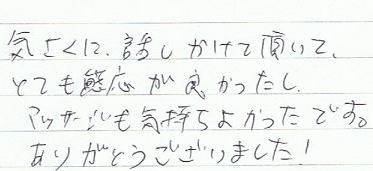 気さくに、話しかけて頂いて、
とても態応が良かったし、
マッサージも気持ちよかったです。
ありがとうございました!